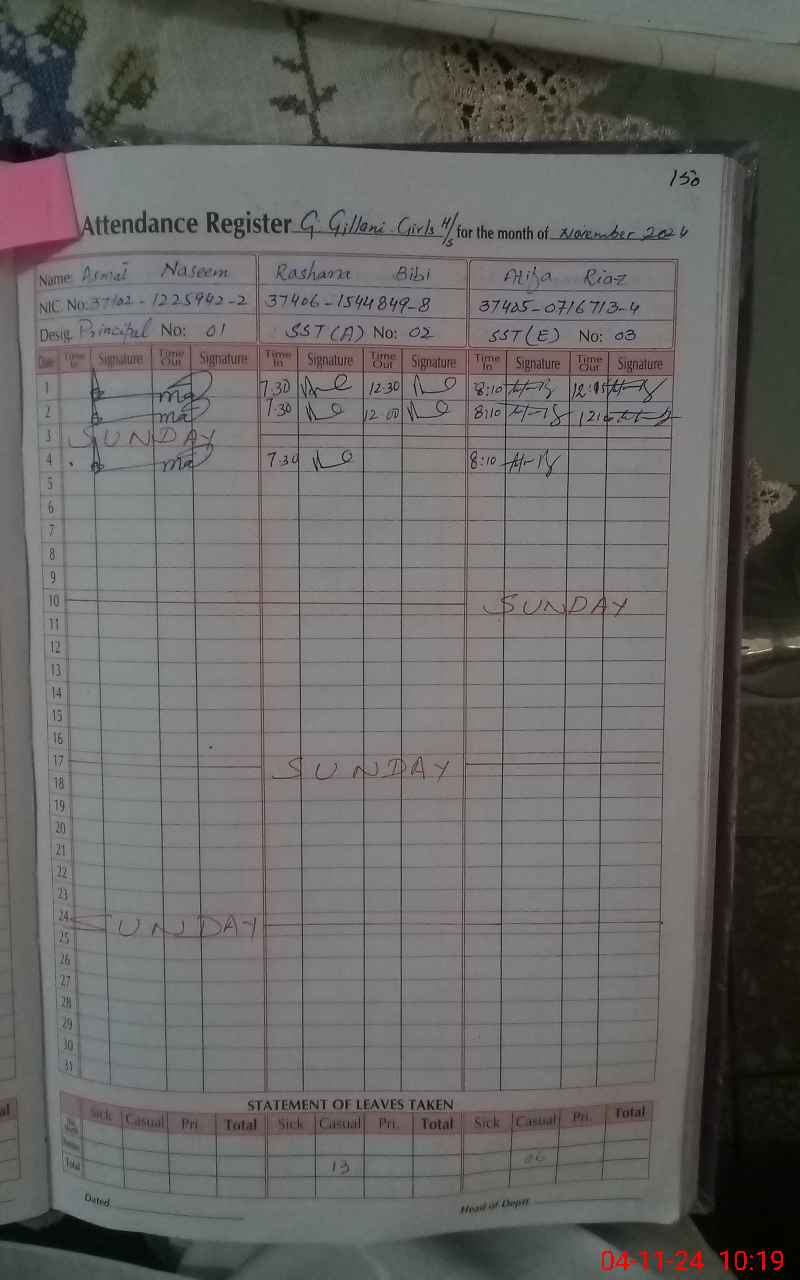 150
Attendance Register G. Gillani Girls H/S for the month of November 2024
Name: Asmat Naseem Rasham Bibi Atiya Riaz
NIC. No: 37102-1225942-2 37406-1544849-8 37405-0716713-4
Desig. Principal No: 01 SST(A) No: 02 SST(E) No: 03
Date Time In Signature Time Out Signature Time In Signature Time Out Signature Time In Signature Time Out Signature
1 7.30 12.30 8:10 12:15
2 7.30 12 00 8:10
3 SUNDAY
4 7.30 8:10
5
6
7
8
9
10 SUNDAY
11
12
13
14
15
16
17 SUNDAY
18
19
20
21
22
23
24 SUNDAY
25
26
27
28
29
30
31
STATEMENT OF LEAVES TAKEN
Sick Casual Pri. Total Sick Casual Pri. Total Sick Casual Pri. Total
Total 13 06
Dated Head of Deptt.
04-11-24 10:19